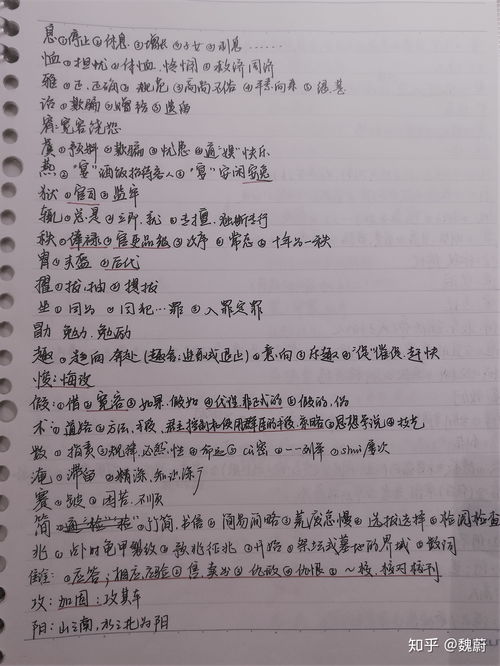 息①停止②休息③增长④子女⑤利息……
恤①担忧②体恤.怜悯③救济周济
雅①正.正确②规范③高尚不俗④平素向来⑤很.甚
诒①欺骗②赠给③遗留
宥:宽容饶恕
虞①预料②欺骗③忧患④通"娱"快乐
燕①"宴"酒饭招待客人②"宴"安闲安逸
狱①官司②监牢
辄①总是②立即.就③专擅.独断专行
秩①俸禄②官吏品级③次序④常态⑤十年为一秩
胄①头盔②后代
擢①拔.抽②提拔
坐①因为②因犯…罪③入罪定罪
勖 勉力.勉励
趣①趋向.奔赴(趣舍:进取或退止)②意向③乐趣④"促"催促.赶快
悛:悔改
假①借②宽容③如果.假如④代理.非正式的⑤假的.伪
术①道路②方法.手段.君主控制和使用群臣的手段.策略③思想学说④技光
数①指责②规律.必然性③命运④cù密⑤一一列举⑥shuò屡次
淹①滞留②精深.知识深广
蹇①跛②困苦.不顺
简①竹简.书信②简易简略③荒废怠慢④选拔选择⑤检阅检查
兆①占卜时龟甲裂纹②预兆征兆③开始④祭坛或墓地的界域⑤数词
雠①应答;相应.应验②售.卖出③仇敌④仇恨⑤~校.校对校刊
攻:加固:攻其车
阳:山之南,水之北为阳
知乎 @魏蔚